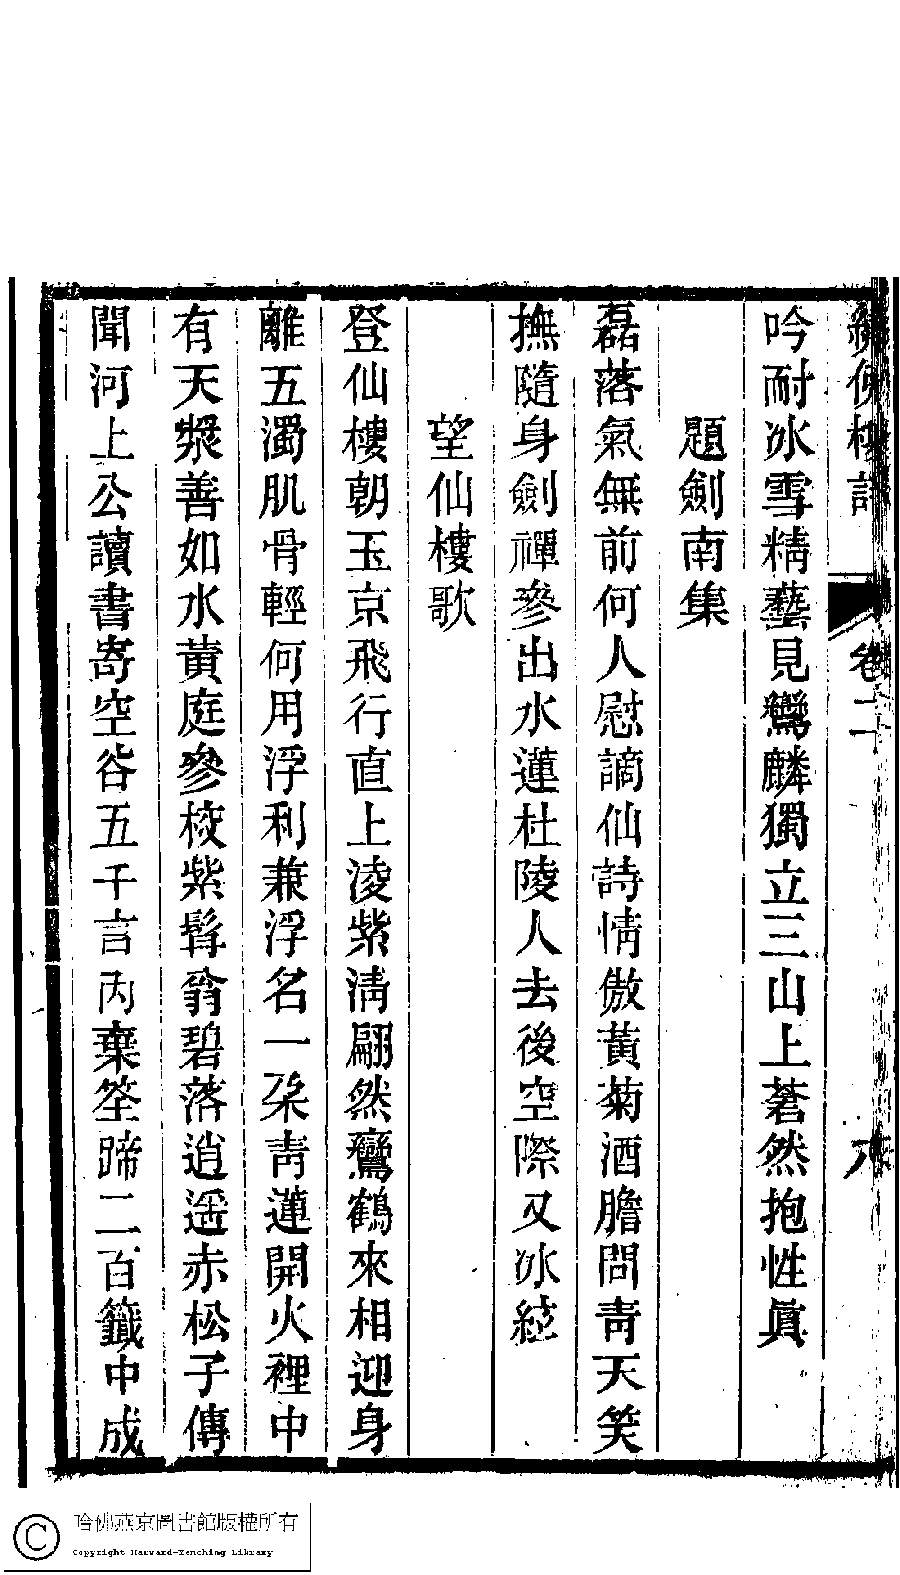 繡佛樓詩 卷二 六
吟耐冰雪精藝見鸞麟獨立三山上蒼然抱性眞
題劍南集
磊落氣無前何人慰謫仙詩情傲黃菊酒膽問靑天笑
撫隨身劍禪參出水蓮杜陵人去後空際又冰絃
望仙樓歌
登仙樓朝玉京飛行直上淩紫淸翩然鸞鶴來相迎身
離五濁肌骨輕何用浮利兼浮名一朶靑蓮開火裡中
有天漿善如水黃庭參校紫髯翁碧落逍遥赤松子傳
聞河上公讀書寄空谷五千言內棄筌蹄二百籤中成
哈佛燕京圖書館版權所有
Copyright Harvard-Yenching Library